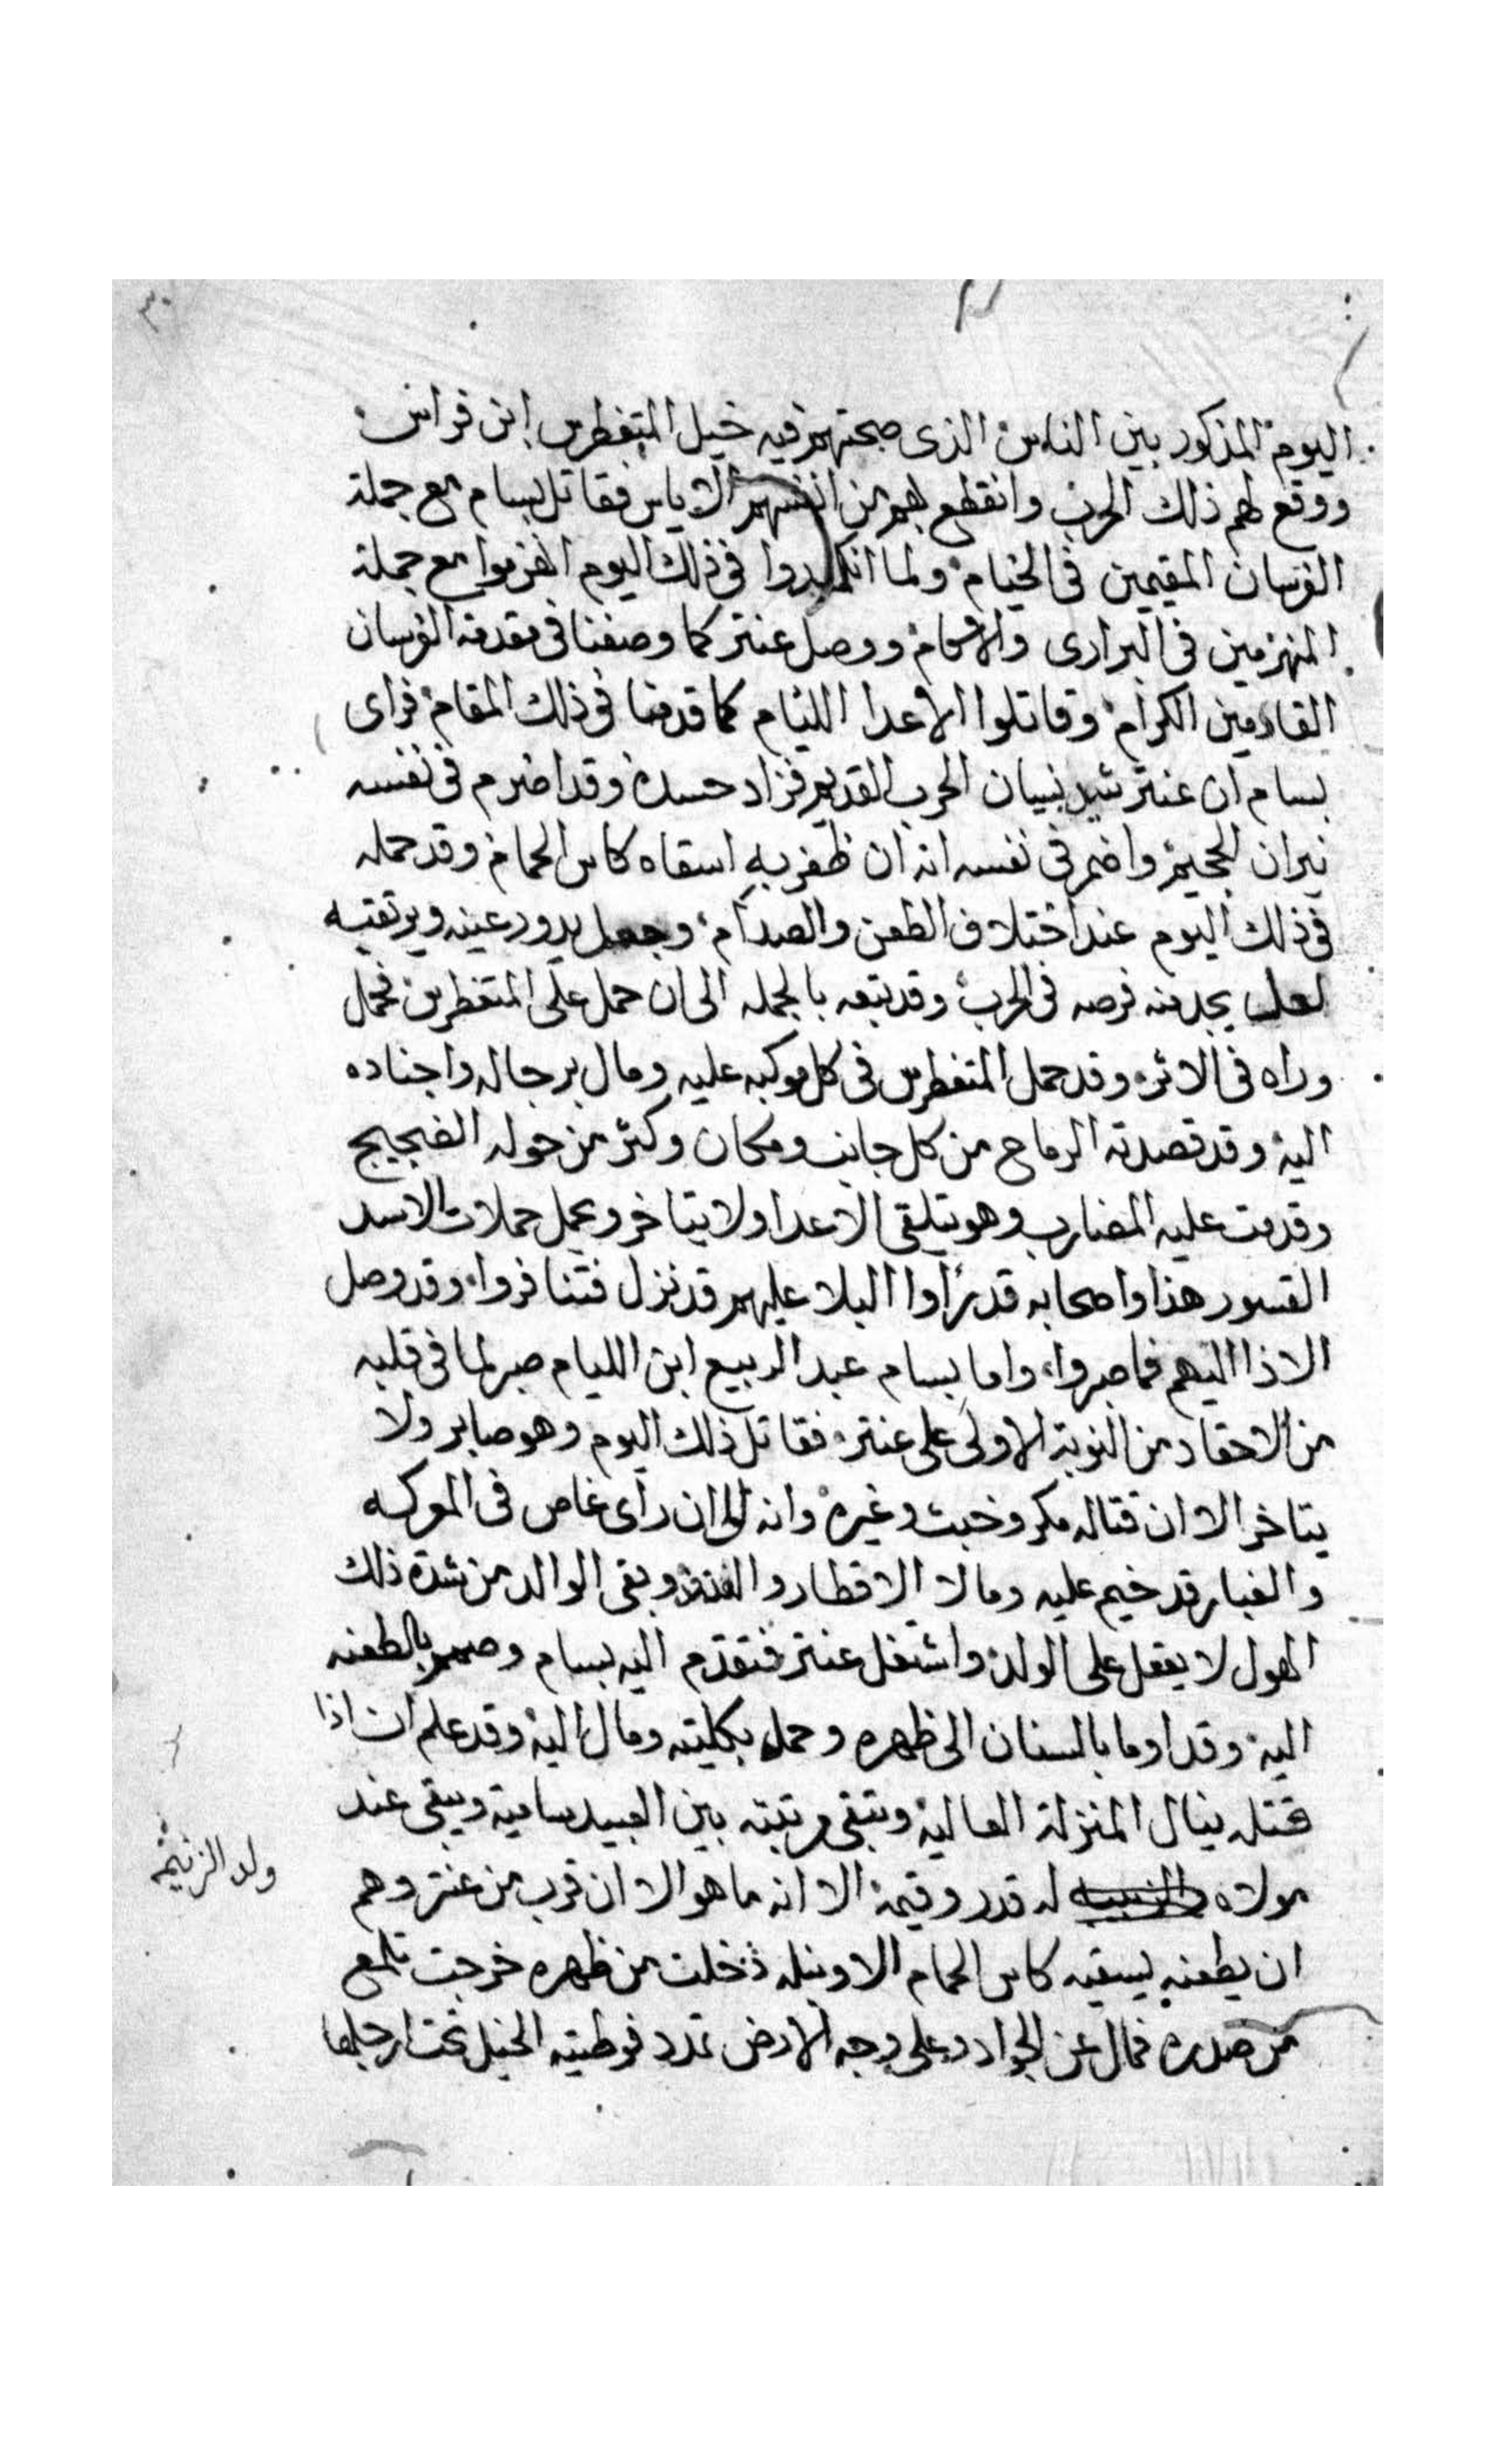 ٣٠
اليوم المذكور بين الناس الذى صبحتهم فيه خيل المتغطرس ابن فراس
ووقع لهم ذلك الحرب وانقطع بهم من انفسهم الاياس فقاتل بسام مع جملة
الفرسان المقيمين فى الخيام ولما انكسروا فى ذلك اليوم انهزموا مع جملة
المنهزمين فى البرارى والاكام ووصل عنتر كما وصفنا فى مقدمة الفرسان
القادمين الكرام وقاتلوا الاعدا الليام كما قدمنا فى ذلك المقام فراى
بسام ان عنتر شيد بنيان الحرب القديم فزاد حسده وقد اضرم فى نفسه
نيران الجحيم واضمر فى نفسه انه ان ظفر به اسقاه كاس الحمام وقد حمله
فى ذلك اليوم عند اختلاف الطعن والصدام وجعل يدور عينه ويرتقيه
لعل يجد منه فرصه فى الحرب وقد تبعه بالجمله الى ان حمل على المتغطرس فحمل
وراه فى الاثر وقد حمل المتغطرس فى كل موكبه عليه ومال برجاله واجناده
اليه وقد قصدته الرماح من كل جانب ومكان وكثر من حوله الضجيج
وقدمت عليه المضارب وهو يتلقى الاعدا ولا يتاخر ويحمل حملات الاسد
القسور هذا واصحابه قد رأوا البلا عليهم قد نزل فتنافروا وقد وصل
الاذا اليهم فما صبروا واما بسام عبد الربيع ابن الليام صبر لما فى قلبه
من الاحقاد من النوبة الاولى على عنتر فقاتل ذلك اليوم وهو صابر ولا
يتاخر الا ان قتاله مكر وخبث وغيره وانه الى ان رأى غاص فى المعركه
والغبار قد خيم عليه ومالا الاقطار وبقى الوالد من شدة ذلك
الهول لا يعقل على الولد واشتغل عنتر فتقدم اليه بسام وصمم بالطعنه
اليه وقد اوما بالسنان الى ظهره وحمل بكليته ومال اليه وقد علم ان اذا
قتله ينال المنزلة العالية وتبقى مرتبته بين العبيد سامية ويبقى عند
مولاه له قدر وقيمة الا انه ما هو الا ان قرب من عنتر وهم
ولد الزنيم
ان يطعنه ليسقيه كاس الحمام الا ونبله دخلت من ظهره خرجت تلمع
من صدره فمال عن الجواد وعلى وجه الارض تمدد فوطيته الخيل تحت ارجلها